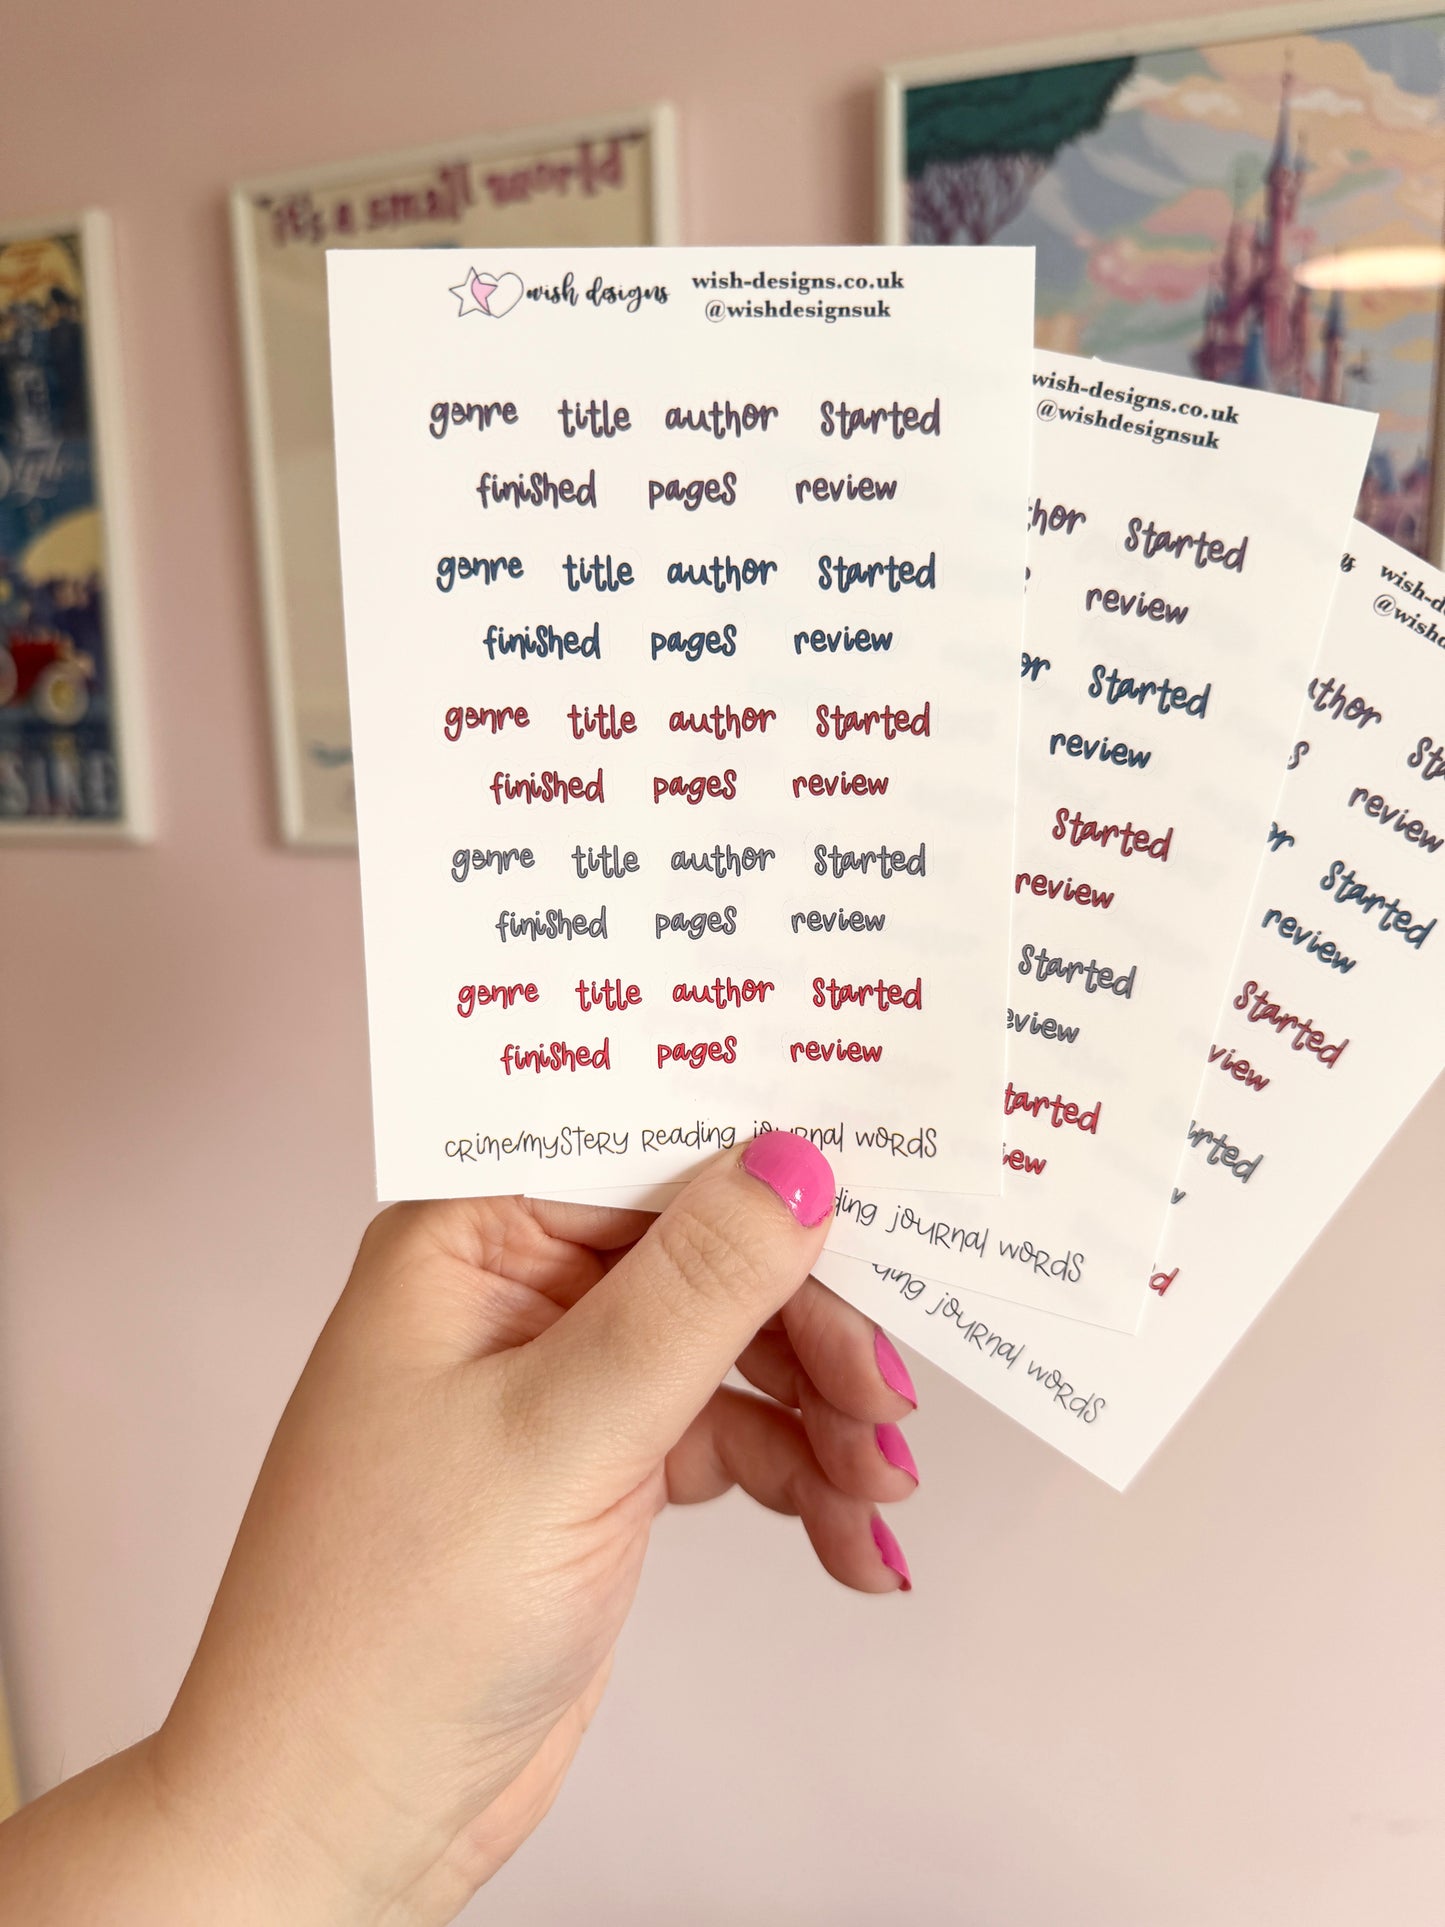 "it's a small world"
wish designs
wish-designs.co.uk
@wishdesignsuk
genre title author started
finished pages review
genre title author started
finished pages review
genre title author started
finished pages review
genre title author started
finished pages review
genre title author started
finished pages review
crime/mystery reading journal words
wish-designs.co.uk
@wishdesignsuk
started
review
started
review
started
review
started
journal words
author
review
started
review
started
journal words